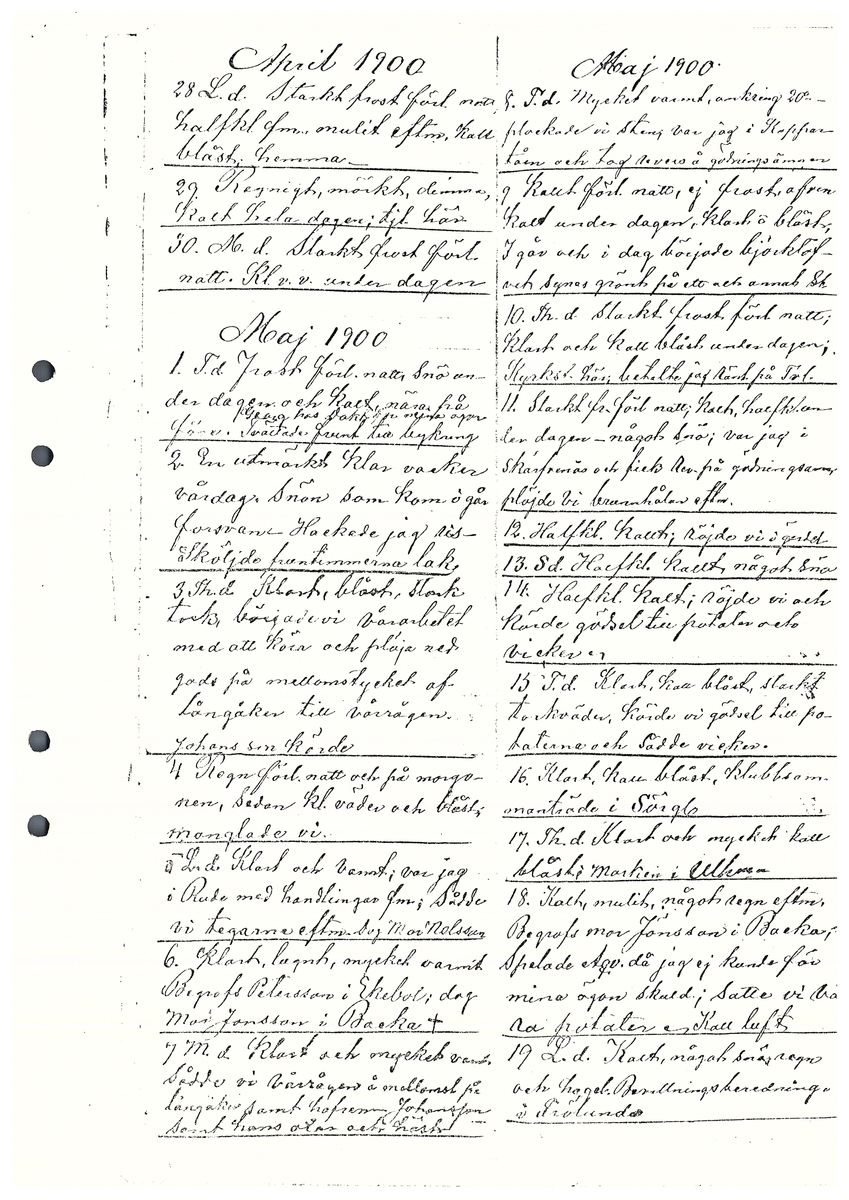 April 1900
28 L. d. Starkt frost förl. natt,
halfkl fm., mulit eftm, Kall
blåst; hemma
29 Regnigt, mörkt, dimma,
Kalt hela dagen; tjl. här
30. M. d. Starkt frost förl.
natt. Kl v. v. under dagen
Maj 1900
1. T.d Frost förl. natt, Snö un-
der dagen och Kalt,
2. En utmärkt Klar vacker
vårdag. Snön som kom i går
forsvann Hackade jag ris
Sköljde fruntimmerna lak,
3, Th.d Klart, blåst, stark
tork, började vi vårarbetet
med att köra och plöja ned
gods på mellomstycket af
Långåker till vårrågen.
Johansson körde
4 Regn förl. natt och på morgo-
nen, Sedan kl. väder och blåst;
manglade vi.
5 L.d. Klart och varmt; var jag
i Rude med handlingar fm; Sådde
vi tegarna eftm. Dog Mor Nelsson
6. Klart, lugnt, mycket varmt
Begrofs Petersson i Ekebol; dog
Mor Jonsson i Backa +
7 M. d Klart och mycket varmt
Sådde vi Vårrågen å mellomst på
långåker samt Johansson
samt hans och häst
Maj 1900
8. T. d. Mycket varmt, omkring 20°-
plockade vi Sten; var jag i Koppar-
och tog revers å gödningsämnen
9 Kallt förl. natt, ej frost, afven
Kalt under dagen, Klart o blåst,
I går och i dag började björklöf-
vet synas grönt på ett och annat
10. Th. d Starkt frost förl natt;
Klart och Kall blåst under dagen;
Kyrkst. här; betalte jag ränt på
11. Starkt fr. förl natt; Kalt, halfkl un-
der dagen – något Snö; var jag i
Skärfsnäs och fick Rev. på gödningsämn
plöjde vi brunnhålan eftm.
12. Halfkl. Kallt; röjde vi i gerdet
13. Sd. Halfkl. Kallt, något Snö
14. Halfkl. Kalt; röjde vi och
Körde gödsel till potater och
vicker
15 T.d. Klart, Kall blåst, starkt
torkväder, Körde vi gödsel till po-
taterna och Sådde vicker.
16. Klart, Kall blåst, Klubbsam-
manträde i Sörgb
17. Th. d. Klart och mycket kall
blåst; Marken i
18. Kalt, mulit, något regn eftm.
Begrofs mor Jönsson i Backa;
Spelade då jag ej kunde för
mina ögon skuld; Satte vi vå
ra potater Kall luft
19 L. d. Kalt, något snö, regn
och hagel. Bevillningsberedning
i Frölunda